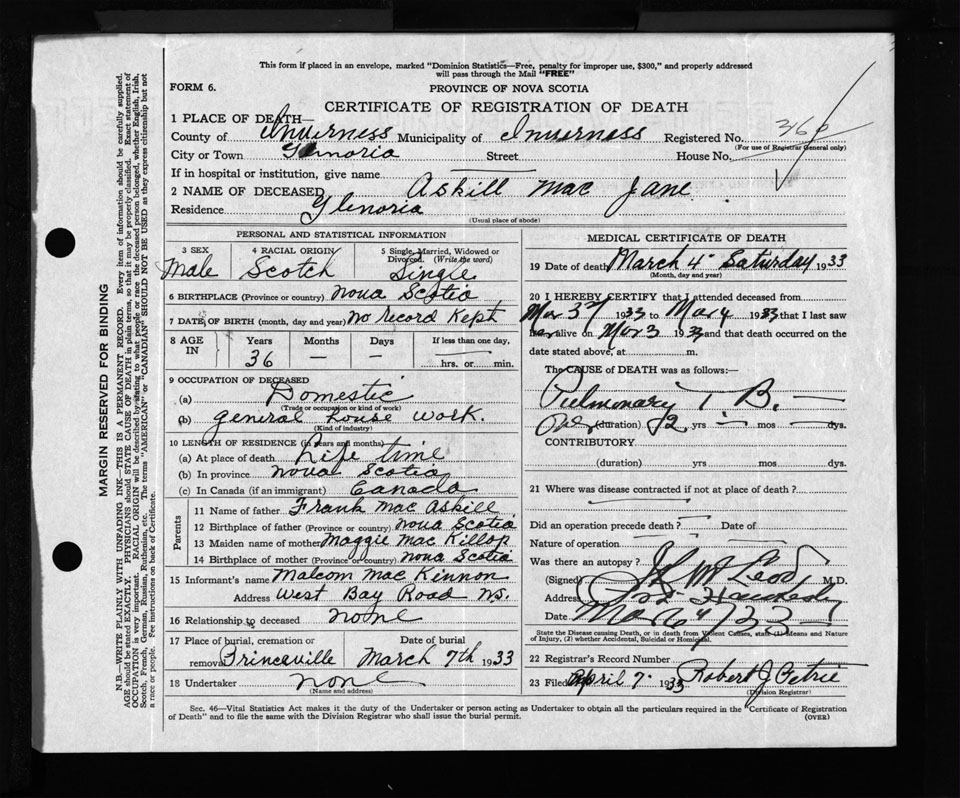 This form if placed in an envelope, marked "Dominion Statistics—Free, penalty for improper use, $300," and properly addressed
will pass through the Mail "FREE"
FORM 6.
PROVINCE OF NOVA SCOTIA
CERTIFICATE OF REGISTRATION OF DEATH
1 PLACE OF DEATH—
County of Inverness Municipality of Inverness Registered No.
(For use of Registrar General only)
City or Town Glenoria Street House No.
If in hospital or institution, give name
2 NAME OF DECEASED Askill Mac Jane
Residence Glenoria
(Usual place of abode)
PERSONAL AND STATISTICAL INFORMATION
3 SEX Male
4 RACIAL ORIGIN Scotch
5 Single, Married, Widowed or Divorced. (Write the word) Single
6 BIRTHPLACE (Province or country) Nova Scotia
7 DATE OF BIRTH (month, day and year) No Record Kept
8 AGE IN Years Months Days If less than one day,
36 — — hrs. or min.
9 OCCUPATION OF DECEASED
(a) Domestic
(Trade or occupation or kind of work)
(b) general house work.
(Kind of industry)
10 LENGTH OF RESIDENCE (in years and months)
(a) At place of death Life time
(b) In province Nova Scotia
(c) In Canada (if an immigrant) Canada
Parents
11 Name of father Frank Mac Askill
12 Birthplace of father (Province or country) Nova Scotia
13 Maiden name of mother Maggie Mac Killop
14 Birthplace of mother (Province or country) Nova Scotia
15 Informant's name Malcom Mac Kinnon
Address West Bay Road N.S.
16 Relationship to deceased none
17 Place of burial, cremation or removal Princeville
Date of burial March 7th 1933
18 Undertaker none
(Name and address)
MEDICAL CERTIFICATE OF DEATH
19 Date of death March 4 Saturday 1933
(Month, day and year)
20 I HEREBY CERTIFY that I attended deceased from
Mar 3 1933 to Mar 4 1933 that I last saw
her alive on Mar 3 1933 and that death occurred on the
date stated above, at m.
The CAUSE OF DEATH was as follows:—
Pulmonary T B. —
Over (duration) 2 yrs — mos — dys.
CONTRIBUTORY
(duration) yrs mos dys.
21 Where was disease contracted if not at place of death?
Did an operation precede death? Date of
Nature of operation
Was there an autopsy?
(Signed) McLeod M.D.
Address Port Hawkesb
Date Mar 6 / 33
State the Disease causing Death, or in death from Violent Causes, state (1) Means and Nature
of Injury, (2) whether Accidental, Suicidal or Homicidal.
22 Registrar's Record Number
23 Filed April 7 1933 Robert J Petrie
(Division Registrar)
Sec. 46—Vital Statistics Act makes it the duty of the Undertaker or person acting as Undertaker to obtain all the particulars required in the "Certificate of Registration
of Death" and to file the same with the Division Registrar who shall issue the burial permit.
(OVER)
MARGIN RESERVED FOR BINDING
N.B.—WRITE PLAINLY WITH UNFADING INK—THIS IS A PERMANENT RECORD. Every item of information should be carefully supplied.
AGE should be stated EXACTLY. PHYSICIANS should STATE CAUSE OF DEATH in plain terms, so that it may be properly classified. Exact statement of
OCCUPATION is very important. RACIAL ORIGIN will be described by stating to what people or race the deceased person belonged, whether English, Irish,
Scotch, French, German, Russian, Ruthenian, etc. The terms "AMERICAN" or "CANADIAN" SHOULD NOT BE USED as they express citizenship but not
a race or people. Fee instructions on back of Certificate.